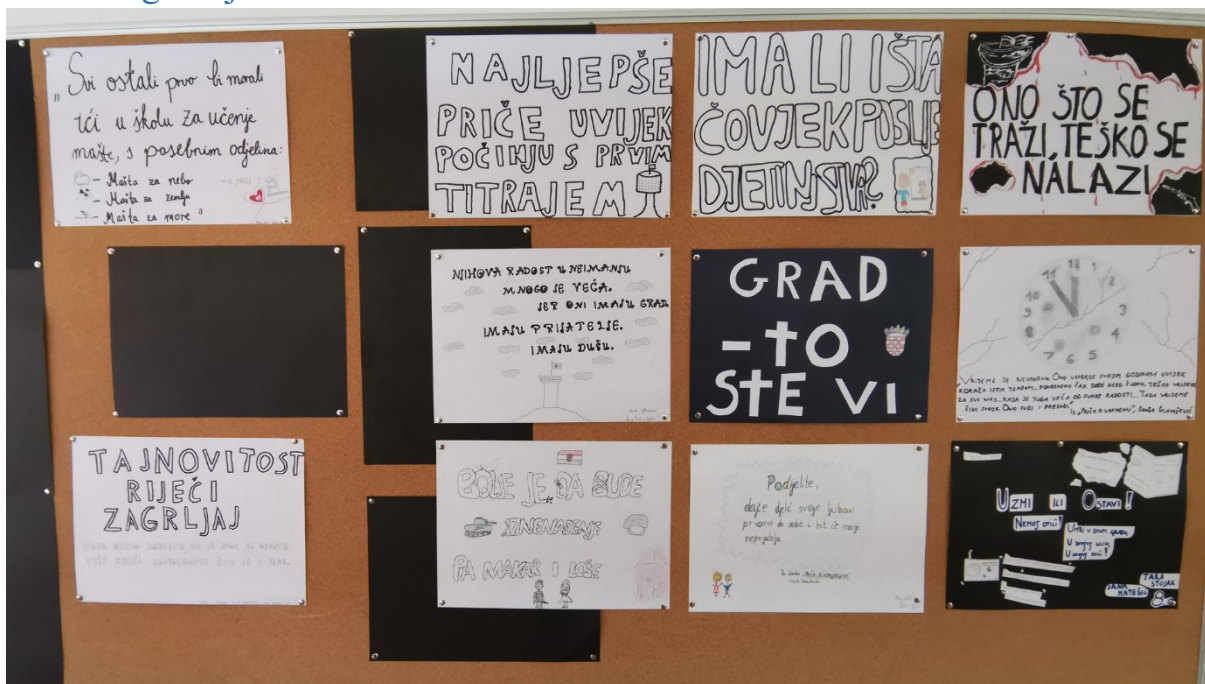 „Svi ostali prvo bi morali
ići u školu za učenje
mašte, s posebnim odjelima:
- Mašta za nebo
- Mašta za zemlju
- Mašta za more "
NAJLJEPŠE
PRIČE UVIJEK
POČINJU S PRVIM
TITRAJEM
IMA LI IŠTA
ČOVJEK POSLIJE
DJETINJSTVA?
ONO ŠTO SE
TRAŽI, TEŠKO SE
NALAZI
NJIHOVA RADOST U NEIMANJU
MNOGO JE VEĆA.
JER ONI IMAJU GRAD.
IMAJU PRIJATELJE.
IMAJU DUŠU.
GRAD
-TO
STE VI
11 12 1
10 2
9 3
8 4
7 6 5
„VRIJEME JE NEUMORNO. ONO USPRKOS SVOJIM GODINAMA UVIJEK
KORAČA ISTIM TEMPOM...
ZA SVE NAS... KADA JE TUGA VEĆA OD SVAKE RADOSTI... TADA VRIJEME
ONO SUDI I PRESUĐUJE"
IZ „PRIČA O VREMENU", SINIŠA GLAVAŠEVIĆ
TAJNOVITOST
RIJEČI
ZAGRLJAJ
BOLJE JE DA BUDE
IZNENAĐENJE
PA MAKAR I LOŠE
Podijelite,
dajte djelić svoje ljubavi
prvome do sebe i bit će manje
neprijatelja.
UZMI ILI OSTAVI!
NEMOJ OTIĆI!
UMRI U SVOM GRADU,
U SVOJOJ ULICI,
U SVOJOJ KUĆI!
TARA
STOJAK
JANA
MATEŠIĆ
8.c